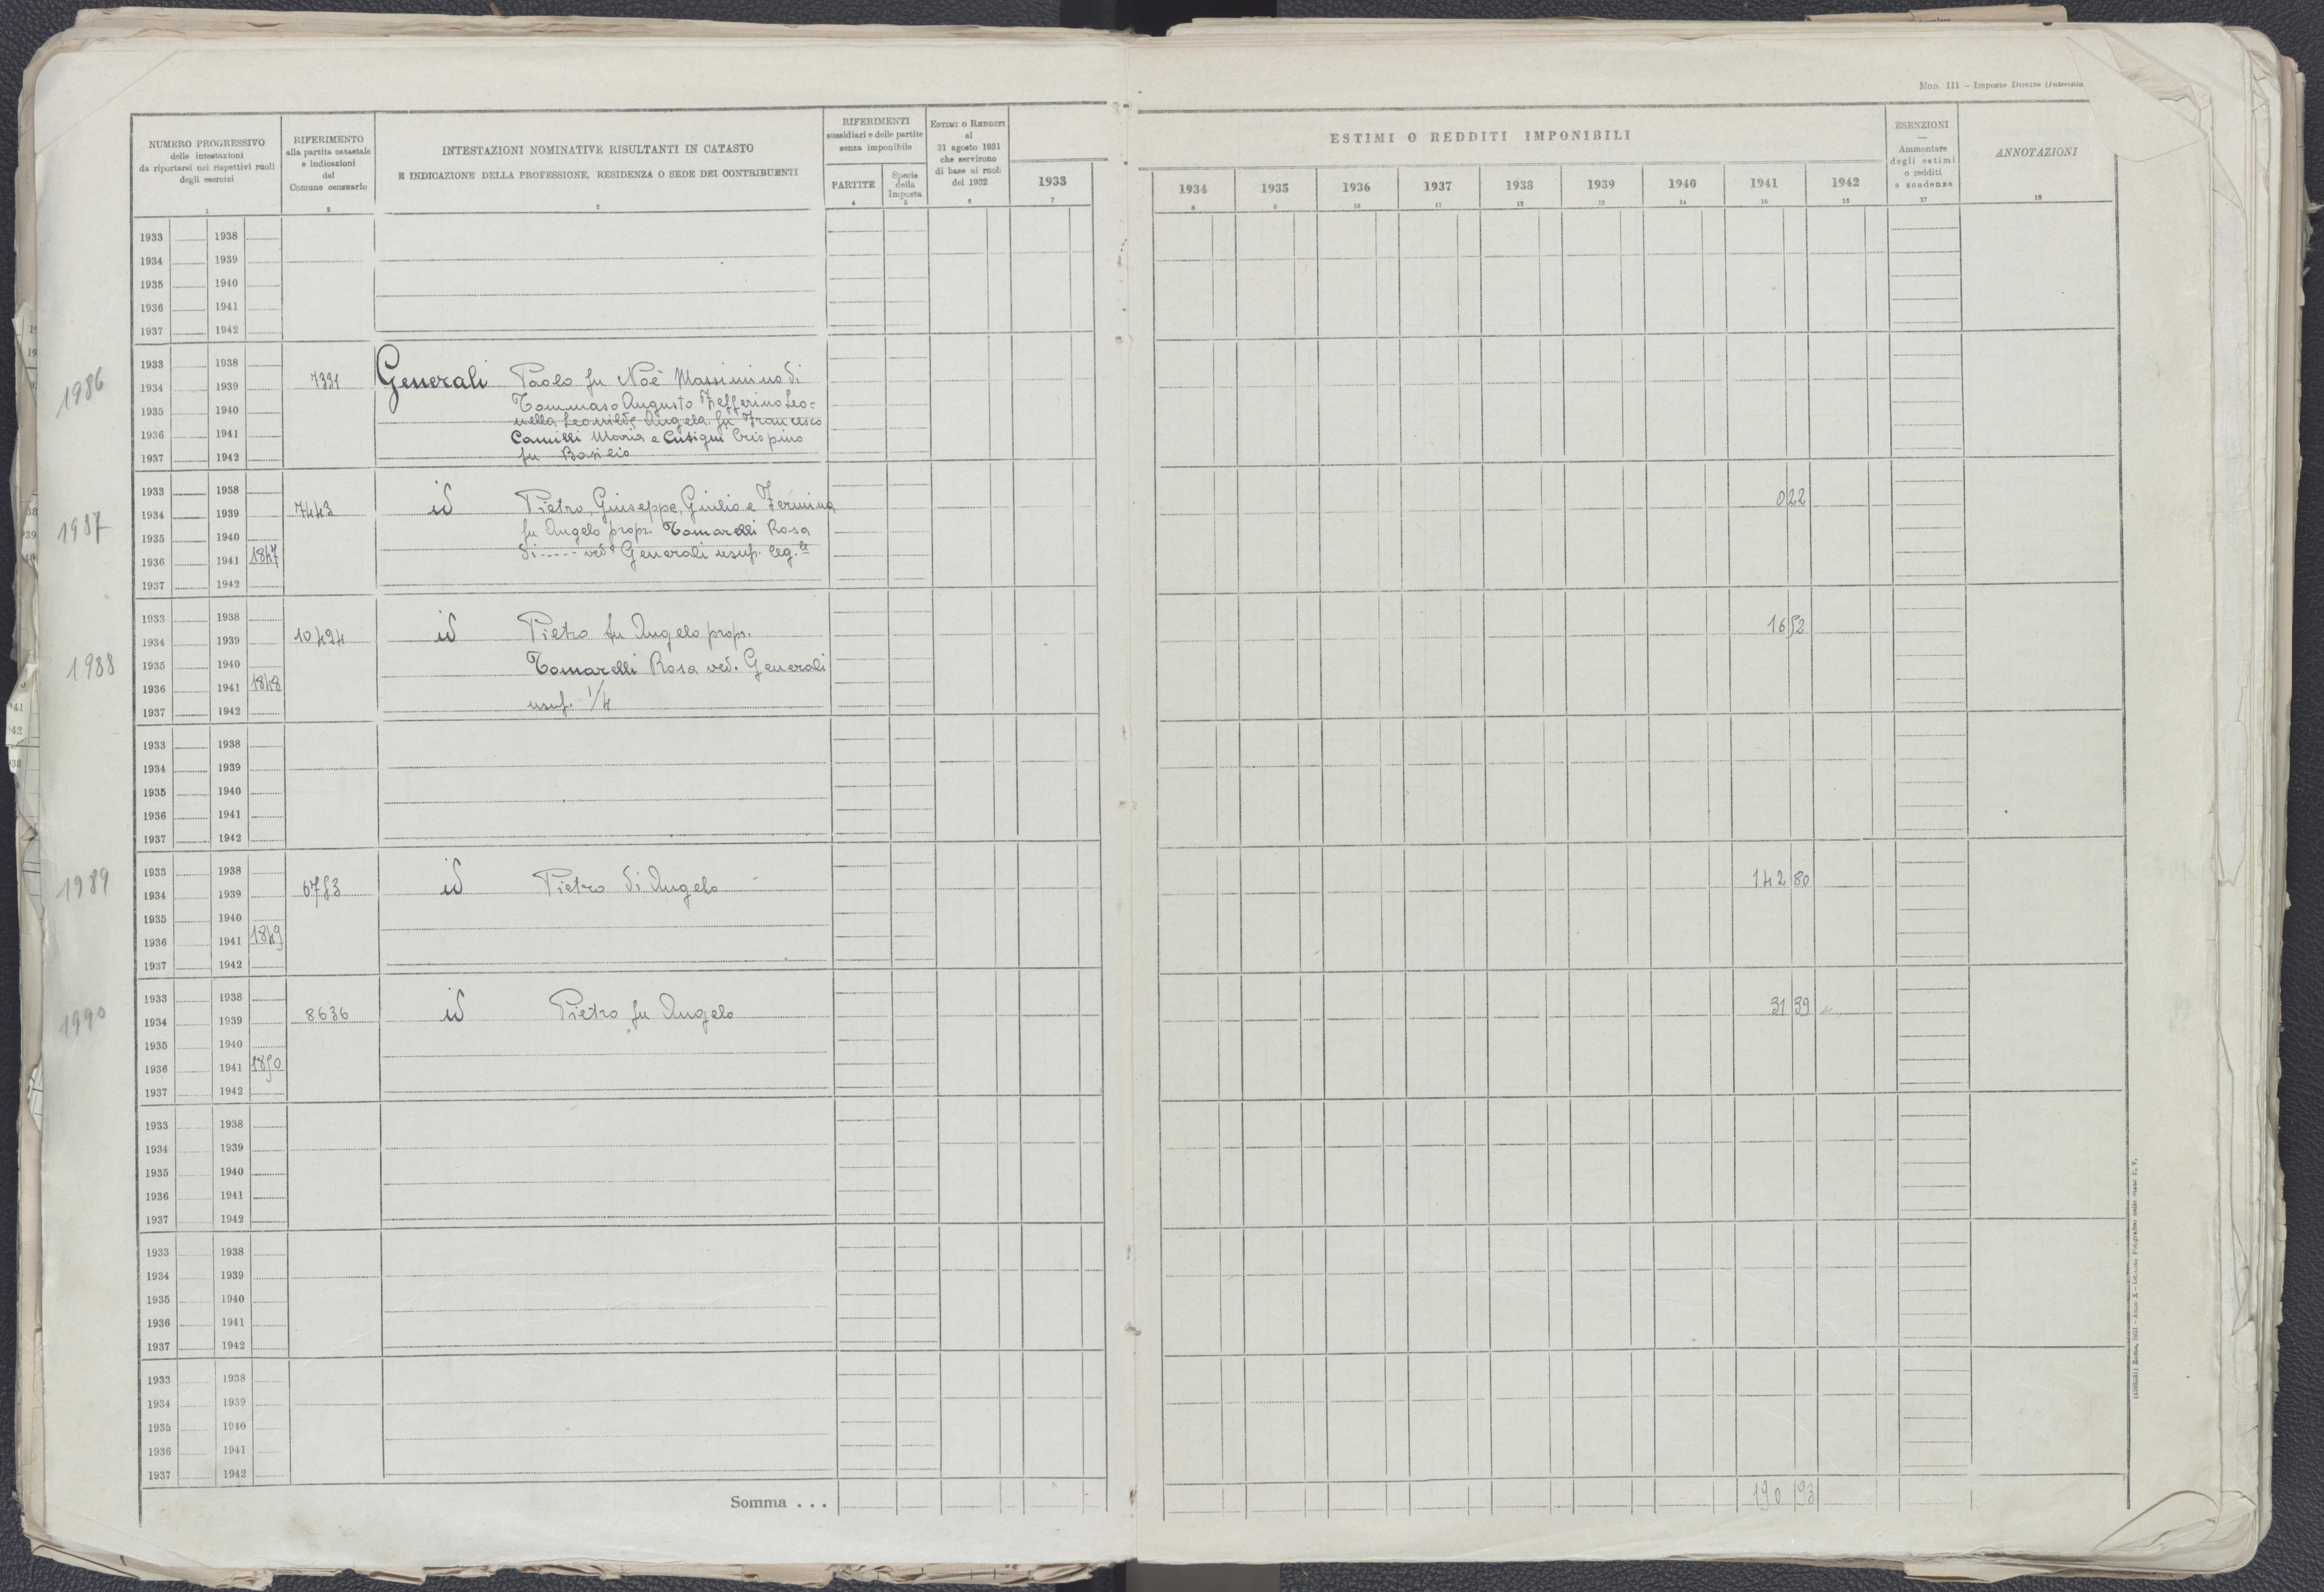 Mod. 111 – Imposte Dirette
NUMERO PROGRESSIVO
delle intestazioni
da riportarsi nei rispettivi ruoli
degli esercizi
1
RIFERIMENTO
alla partita catastale
e indicazioni
del
Comune censuario
2
INTESTAZIONI NOMINATIVE RISULTANTI IN CATASTO
E INDICAZIONE DELLA PROFESSIONE, RESIDENZA O SEDE DEI CONTRIBUENTI
3
RIFERIMENTI
sussidiari e delle partite
senza imponibile
PARTITE
4
Specie
della
Imposta
5
ESTIMI O REDDITI
al
31 agosto 1931
che servirono
di base ai ruoli
del 1932
6
1933
7
ESTIMI O REDDITI IMPONIBILI
1934 1935 1936 1937 1938 1939 1940 1941 1942
8 9 10 11 12 13 14 15 16
ESENZIONI
—
Ammontare
degli estimi
o redditi
e scadenze
17
ANNOTAZIONI
18
1933 1938
1934 1939
1935 1940
1936 1941
1937 1942
1986
1933 1938
1934 1939 7331 Generali Paolo fu Noè Massimino di
Tommaso Augusto Zefferino Leo=
1935 1940
nella Leonilde Angela fu Francesco
1936 1941 Camilli Maria e Cutigni Crispino
1937 1942 fu Basilio
1987
1933 1938
1934 1939 7443 id Pietro, Giuseppe, Giulio e Fermina 0 22
1935 1940 fu Angelo propr. Tomarelli Rosa
1936 1941 1847 di ----- ved. Generali usuf. leg.le
1937 1942
1988
1933 1938
1934 1939 10494 id Pietro fu Angelo propr. 16 52
1935 1940 Tomarelli Rosa ved. Generali
1936 1941 1848
1937 1942 usuf. 1/4
1933 1938
1934 1939
1935 1940
1936 1941
1937 1942
1989
1933 1938
1934 1939 6753 id Pietro di Angelo 142 80
1935 1940
1936 1941 1849
1937 1942
1990
1933 1938
1934 1939 8636 id Pietro fu Angelo 31 39
1935 1940
1936 1941 1850
1937 1942
1933 1938
1934 1939
1935 1940
1936 1941
1937 1942
1933 1938
1934 1939
1935 1940
1936 1941
1937 1942
1933 1938
1934 1939
1935 1940
1936 1941
1937 1942
Somma . . . 190 93